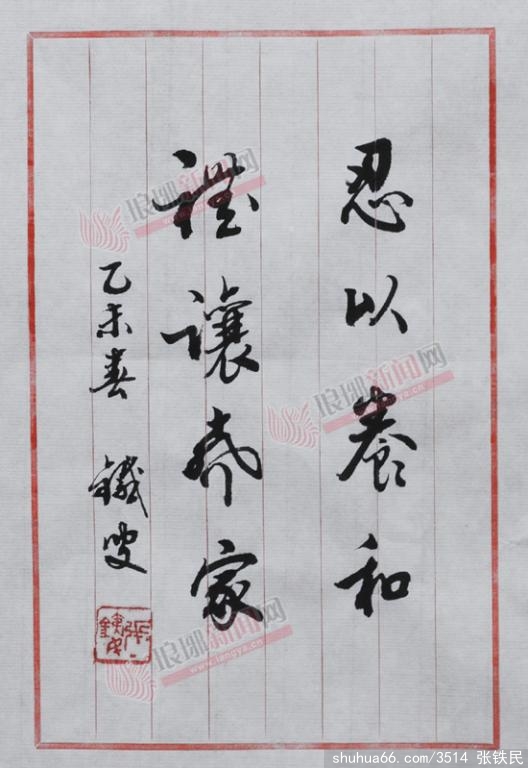 忍以養和
禮讓齊家
乙未春 鐵叟
琅琊新闻网
琅琊新闻网
琅琊新闻网
www.langya.cn
shuhua66.com/3514 张铁民